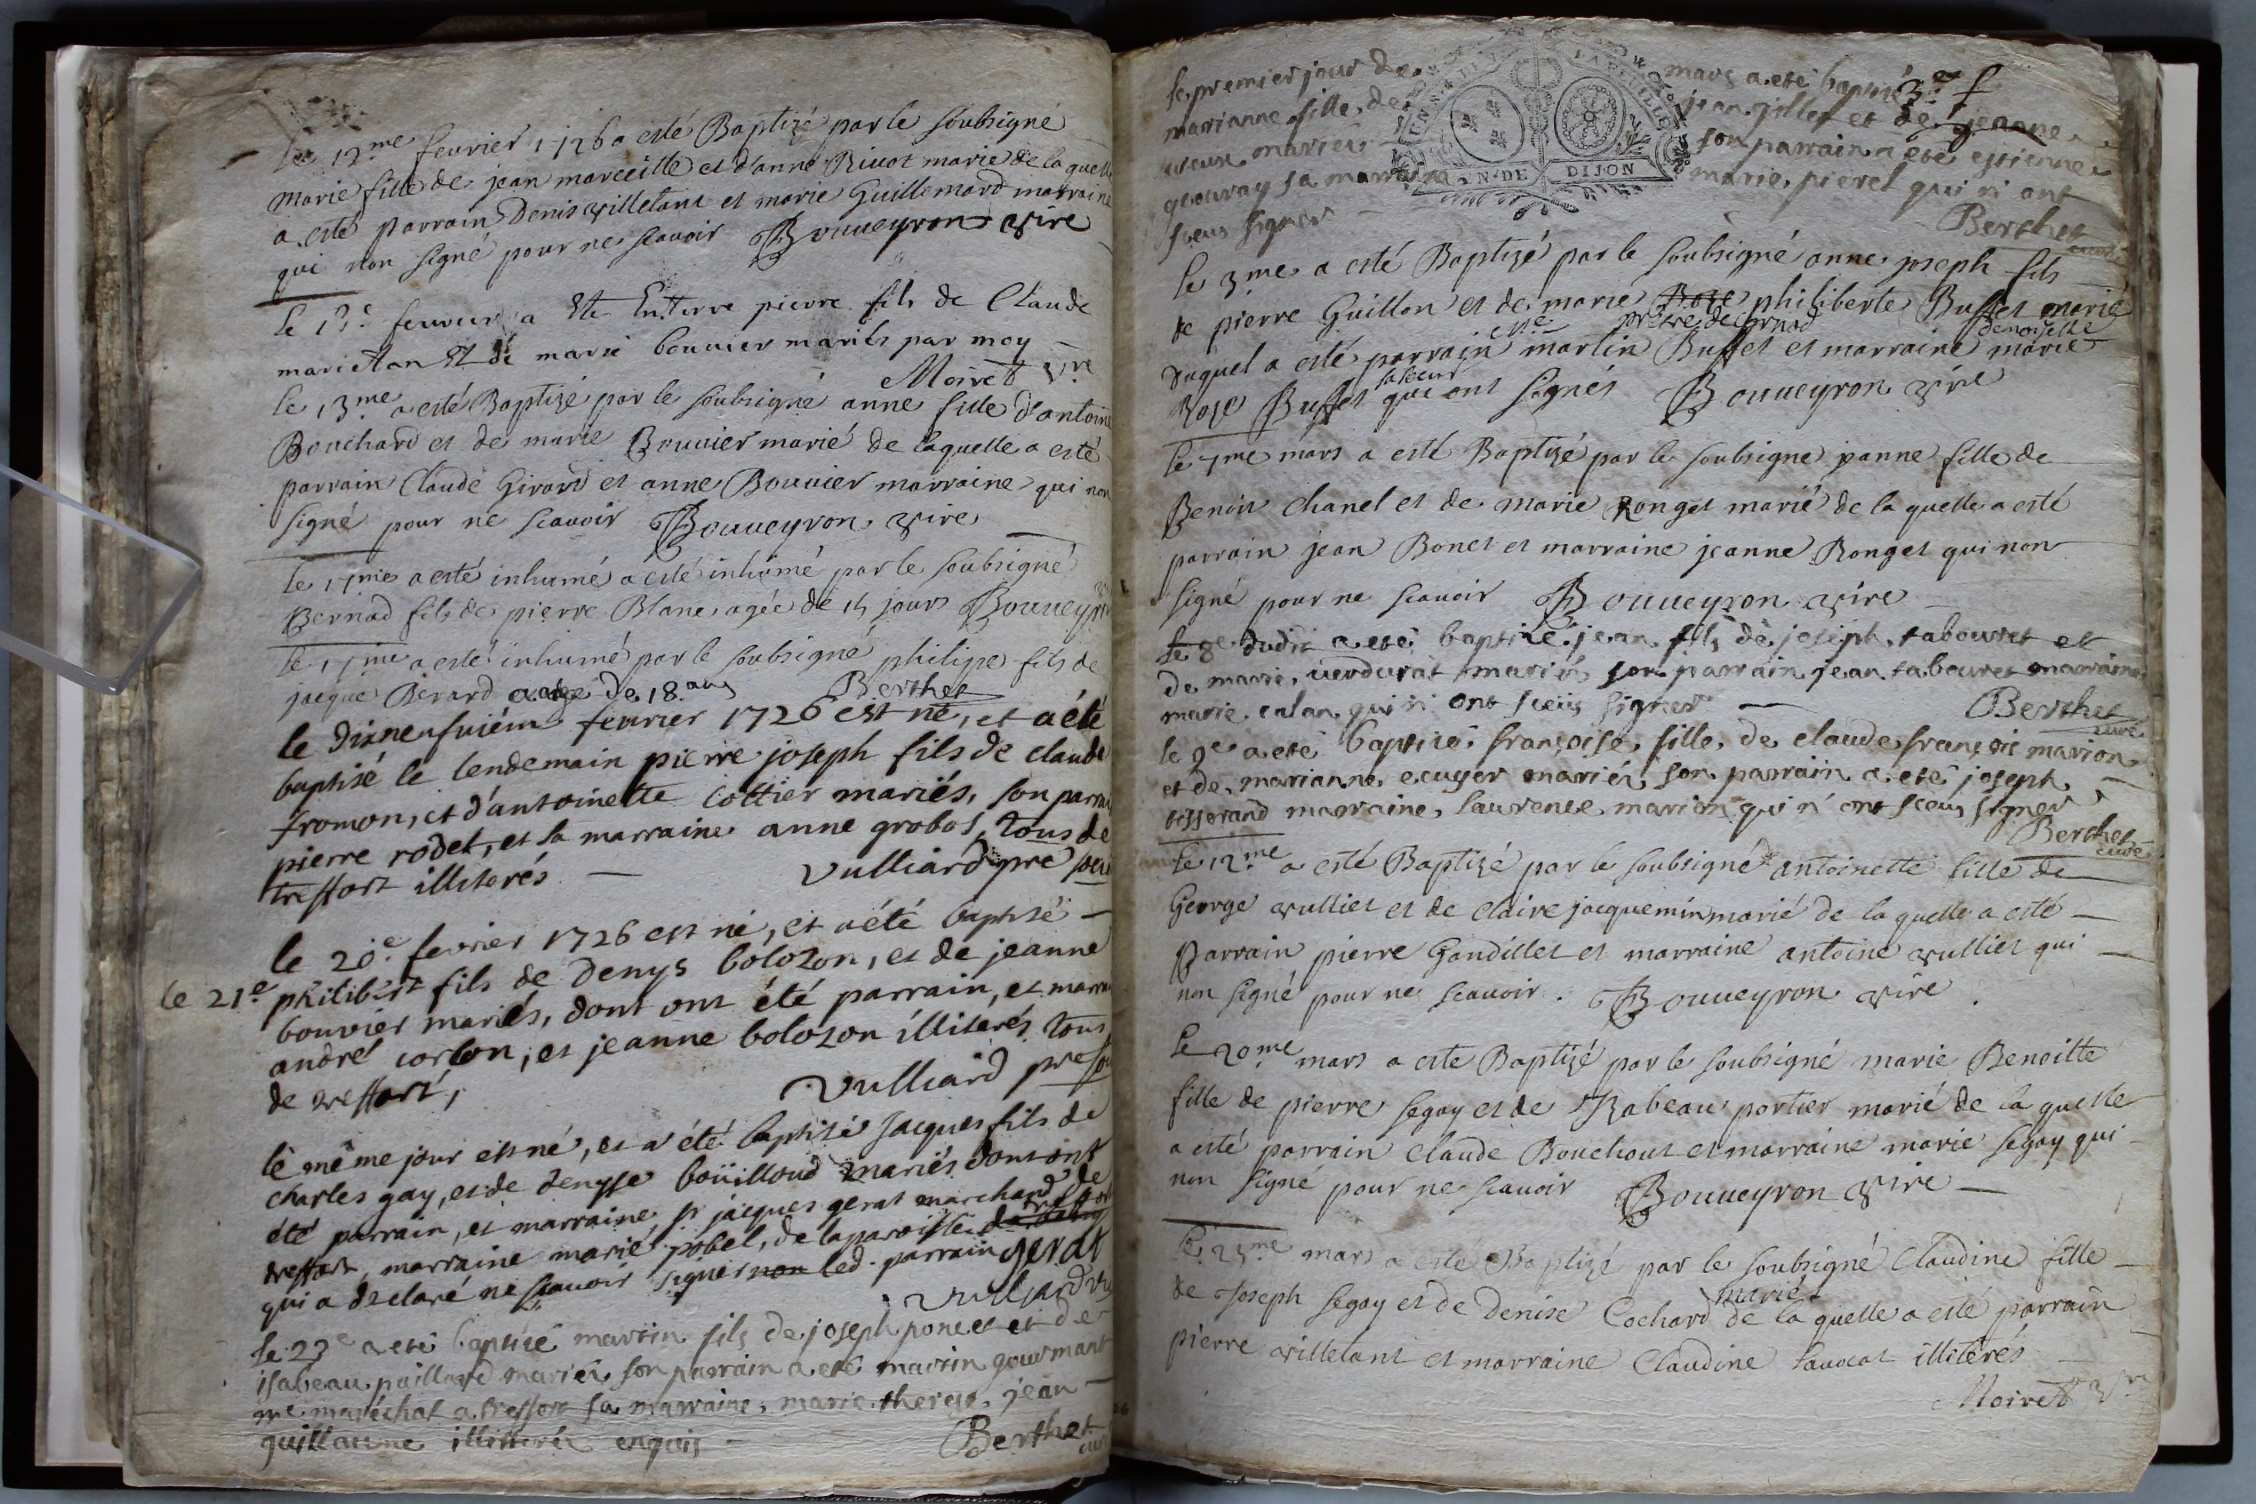 Le 12me feurier 1726 a esté Baptizé par le soubsigné
marie fille de jean marceille et d'anne Riuot marié de la quelle
a esté parrain Denis willetant et marie Guillemard marraine
qui non signé pour ne scauoir Bouueyron vire
le feurier a Ete Enterre pierre fils de Claude
marietan Et de marie bouuier mariés par moy
Moiret vre
le 13me a esté Baptizé par le soubsigné anne fille d'antoine
Bouchard et de marie Bouuier marié de laquelle a esté
parrain Claude Girard et anne Bouuier marraine qui non
signé pour ne scauoir Bouueyron vire
le a esté inhumé a esté inhumé par le soubsigné
Bernad fils de pierre Blanc agée de 15 jours Bouueyron
le a esté inhumé par le soubsigné philipe fils de
jacque Berard agé de 18 ans Berthet
le dixneufuiéme feurier 1726 est né, et a été
baptisé le lendemain pierre joseph fils de claude
fromon, et d'antoinette cottier mariés, son parrain
pierre rodet, et sa marraine anne grobos, tous de
treffort illiterés Vulliard pre
le 20.e fevrier 1726 est né, et a été baptisé
le 21e philibert fils de denys bolozon, et de jeanne
bouvier mariés, dont ont été parrain, et marraine
andré corton, et jeanne bolozon illiterés tous
de treffort, Vulliard pre
le même jour est né, et a été baptisé jacques fils de
charles gay, et de denyse boüilloud mariés dont ont
été parrain, et marraine, sr jacques gerat marchand de
treffort, marraine marie pobel, de la paroisse de treffort
qui a declaré ne scavoir signer non led. parrain gerat
Vulliard
le 22e a eté baptizé martin fils de joseph poncet et de
isabeau paillard mariés son parrain a eté martin gourmant
me maréchal a treffort sa marraine marie therese jean
guillaume illiterés enquis Berthet
curé
le premier jour de mars a eté baptizé 3e f
marianne fille de jean gillet et de jeanne
mariés son parrain a eté estienne
gouvray sa marraine marie pierel qui n'ont
sceus signer Berthet
curé
GEN. DE DIJON
le 3me a esté Baptizé par le soubsigné anne joseph fils
de pierre Guillon et de marie Roze philiberte Buffet marié
prêtre de demoiselle
duquel a esté parrain martin Buffet et marraine marie
sa soeur
Roze Buffet qui ont signés Bouueyron vire
le 7me mars a esté Baptizé par le soubsigné jeanne fille de
Benoit Chanel et de marie Ronget marié de la quelle a esté
parrain jean Bonet et marraine jeanne Ronget qui non
signé pour ne scauoir Bouueyron vire
le 8e dudit a eté baptizé jean fils de joseph tabouret et
de marie verdurat mariés son parrain jean tabouret marraine
marie calan qui n'ont sceus signer Berthet
curé
le 9e a eté baptizé françoise fille de claude françois marion
et de marianne ecuyer mariés son parrain a eté joseph
tisserand marraine laurence marion qui n'ont sceus signer
Berthet
curé
le 12me a esté Baptizé par le soubsigné antoinette fille de
George vulliet et de claire jacquemin marié de la quelle a esté
Parrain pierre Gandillet et marraine antoine vulliet qui
non signé pour ne scauoir. Bouueyron vire.
Le 20me mars a este Baptizé par le soubsigné marie Benoitte
fille de pierre segay et de Isabeau portier marié de la quelle
a esté parrain Claude Bouchout et marraine marie segay qui
non signé pour ne scauoir Bouueyron vire
le 25me mars a esté Baptizé par le soubsigné Claudine fille
mariés
de Joseph segay et de Denise Cochard de la quelle a esté parrain
pierre willetant et marraine Claudine Lauocat illiterés
Moiret vre